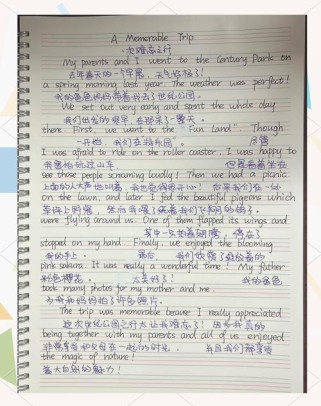 A Memorable Trip
一次难忘之行
My parents and I went to the Century Park on
去年春天的一个早晨,天气好极了!
a spring morning last year. The weather was perfect!
我的爸爸妈妈带着我去了世纪公园。
We set out very early and spent the whole day
我们出发的很早,在那呆了一整天。
there. First, we went to the "Fun Land". Though
一开始,我们在"游乐园"。尽管
I was afraid to ride on the roller coaster, I was happy to
我害怕玩过山车 但是看着坐在
see those people screaming loudly! Then we had a picnic
上面的人大声地叫着,我也觉得很开心!后来我们在
on the lawn, and later I fed the beautiful pigeons which
草坪上野餐,然后我喂了绕着我们飞翔的鸽子。
were flying around us. One of them flapped its wings and
其中一只拍着翅膀,停在了
stopped on my hand. Finally, we enjoyed the blooming
我的手上。最后,我们欣赏了盛放着的
pink sakura. It was really a wonderful time! My father
粉色樱花。太美好了!我的爸爸
took many photos for my mother and me.
为我和妈妈拍了许多照片。
The trip was memorable because I really appreciated
这次世纪公园之行太让我难忘了!因为我真的
being together with my parents and all of us enjoyed
非常享受和父母在一起的时光,并且我们都享受
the magic of nature!
着大自然的魅力!